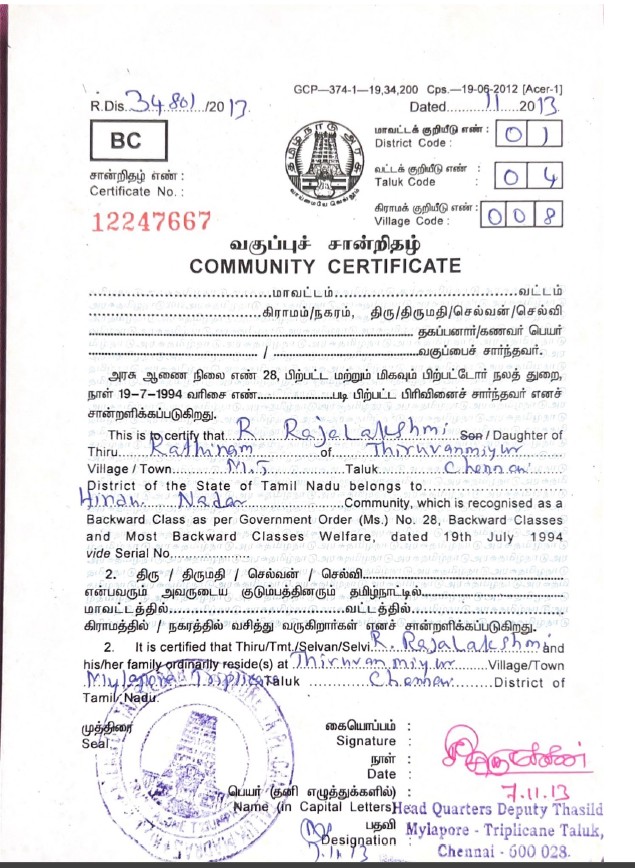 GCP—374-1—19,34,200 Cps.—19-06-2012 [Acer-1]
R.Dis. 34801 /2013
Dated..........11 2013
BC
மாவட்டக் குறியீடு எண் :
District Code :
0 1
சான்றிதழ் எண் :
Certificate No. :
வட்டக் குறியீடு எண் :
Taluk Code :
0 4
12247667
கிராமக் குறியீடு எண் :
Village Code :
0 0 8
தமிழ்நாடு அரசு
வாய்மையே வெல்லும்
வகுப்புச் சான்றிதழ்
COMMUNITY CERTIFICATE
..........மாவட்டம்..........வட்டம்
..........கிராமம்/நகரம், திரு/திருமதி/செல்வன்/செல்வி
.......... தகப்பனார்/கணவர் பெயர்
.......... / ..........வகுப்பைச் சார்ந்தவர்.
அரசு ஆணை நிலை எண் 28, பிற்பட்ட மற்றும் மிகவும் பிற்பட்டோர் நலத் துறை,
நாள் 19-7-1994 வரிசை எண்..........படி பிற்பட்ட பிரிவினைச் சார்ந்தவர் எனச்
சான்றளிக்கப்படுகிறது.
This is to certify that R RajaLakshmi Son / Daughter of
Thiru Rathinam of Thiruvanmiyur
Village / Town M.T Taluk Chennai
District of the State of Tamil Nadu belongs to..........
Hindu Nadar Community, which is recognised as a
Backward Class as per Government Order (Ms.) No. 28, Backward Classes
and Most Backward Classes Welfare, dated 19th July 1994
vide Serial No...........
2. திரு / திருமதி / செல்வன் / செல்வி..........
என்பவரும் அவருடைய குடும்பத்தினரும் தமிழ்நாட்டில்..........
மாவட்டத்தில்..........வட்டத்தில்..........
கிராமத்தில் / நகரத்தில் வசித்து வருகிறார்கள் எனச் சான்றளிக்கப்படுகிறது.
2. It is certified that Thiru/Tmt./Selvan/Selvi. R. RajaLakshmi and
his/her family ordinarily reside(s) at Thiruvanmiyur Village/Town
Mylapore Triplica Taluk Chennai District of
Tamil Nadu.
முத்திரை
Seal
கையொப்பம் :
Signature :
நாள் :
Date :
7.11.13
பெயர் (தனி எழுத்துக்களில்) :
Name (in Capital Letters)
Head Quarters Deputy Thasild
பதவி
Designation :
Mylapore - Triplicane Taluk,
Chennai - 600 028.